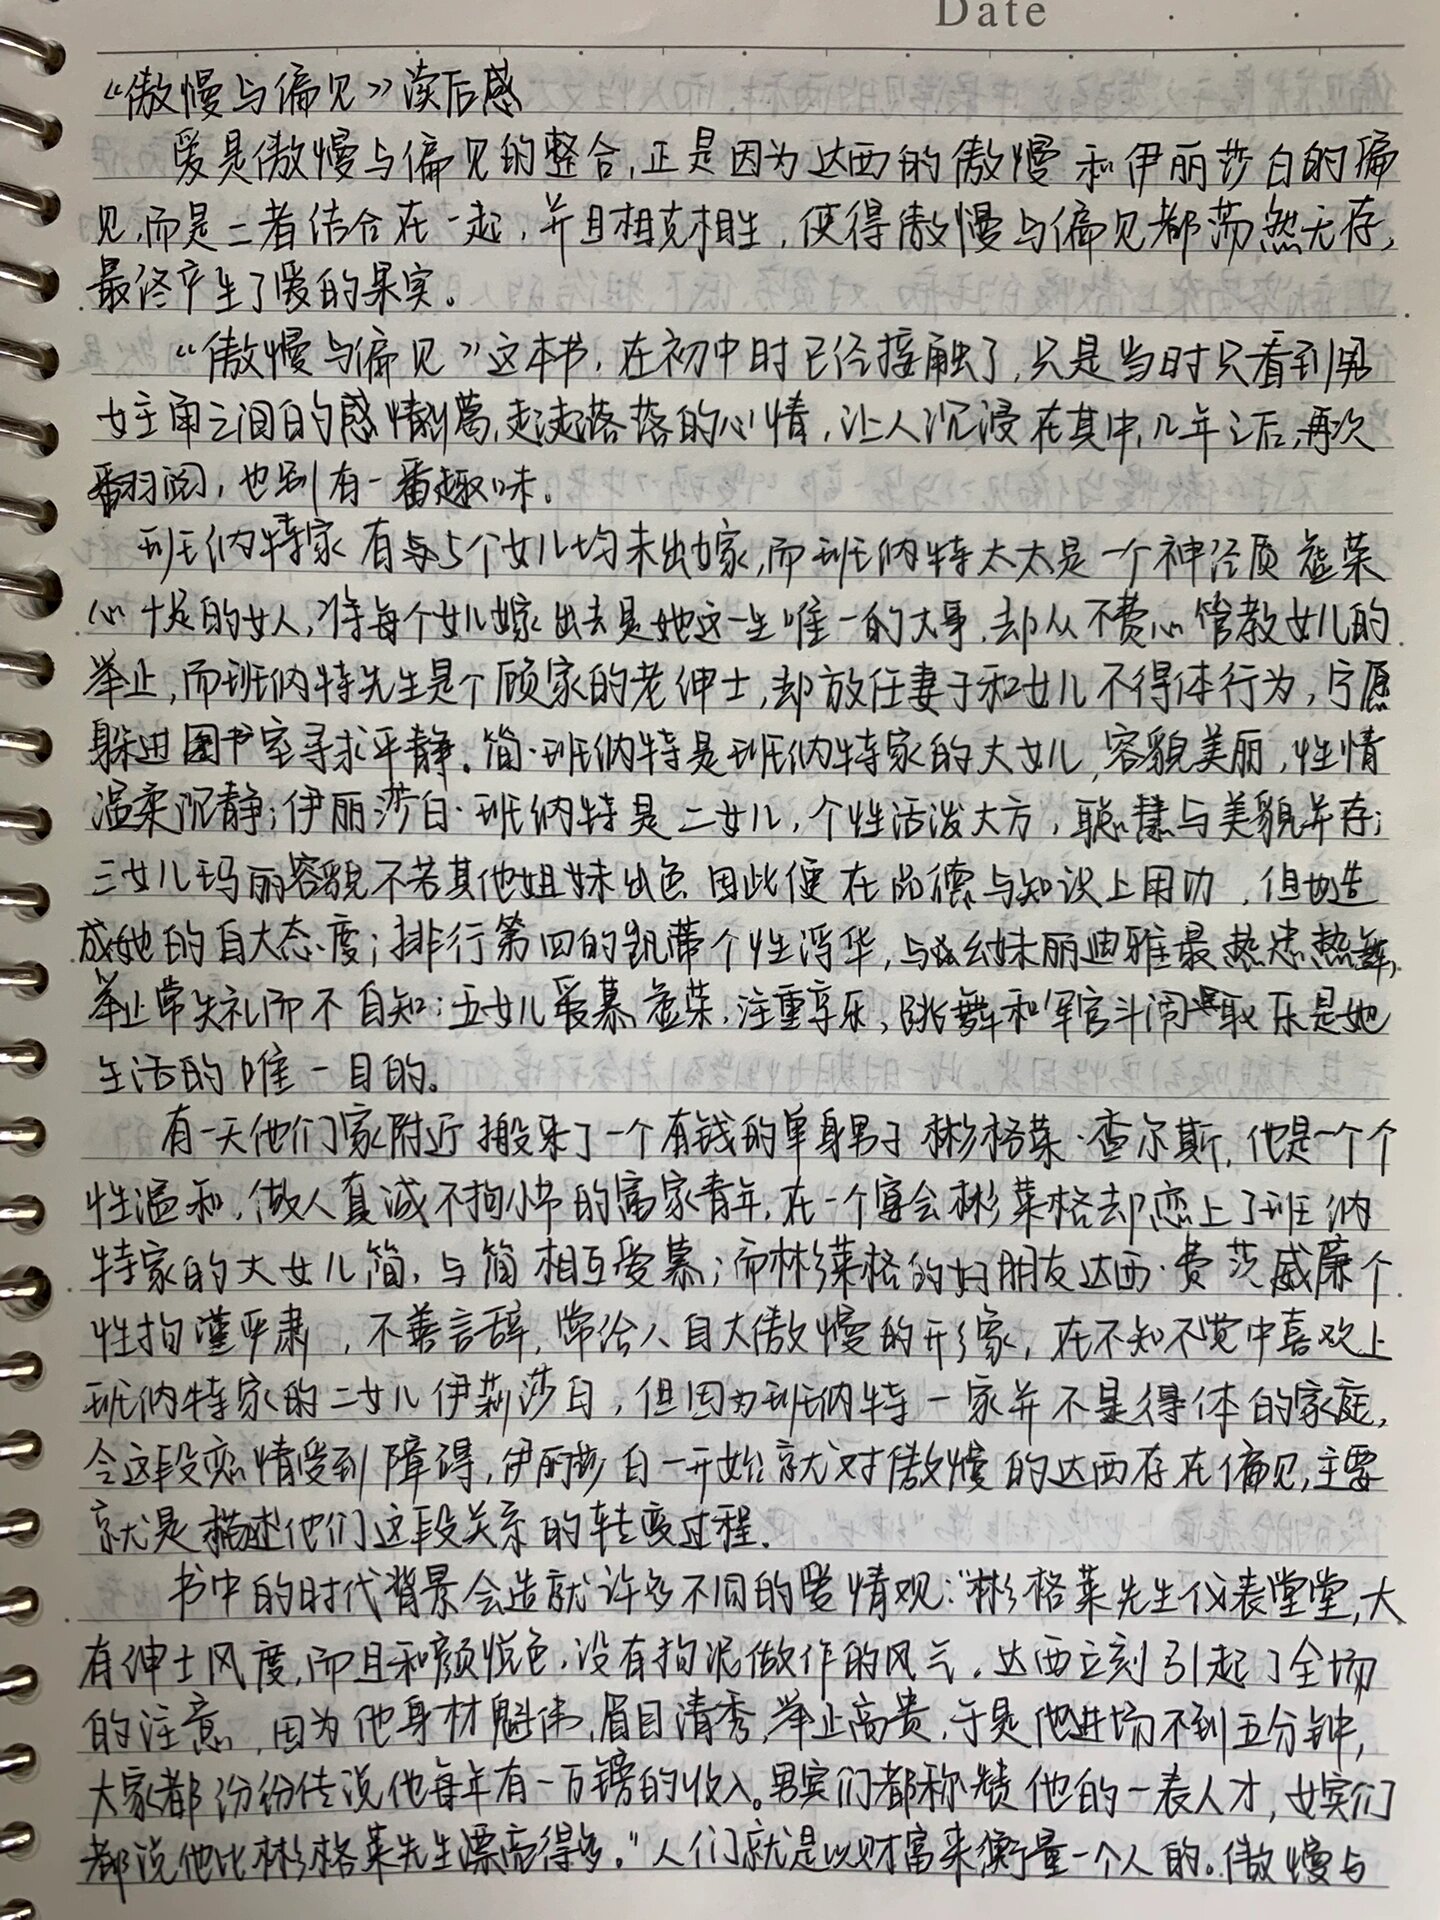 Date
《傲慢与偏见》读后感
爱是傲慢与偏见的整合,正是因为达西的傲慢和伊丽莎白的偏
见,而是二者结合在一起,并且相克相生,使得傲慢与偏见都荡然无存,
最终产生了爱的果实。
“傲慢与偏见”这本书,在初中时已经接触了,只是当时只看到男
女主角之间的感情纠葛,起起落落的心情,让人沉浸在其中,几年之后,再次
翻阅,也别有一番趣味。
班纳特家有5个女儿均未出嫁,而班纳特太太是一个神经质虚荣
心十足的女人,将每个女儿嫁出去是她这一生唯一的大事,却从不费心管教女儿的
举止,而班纳特先生是个顾家的老绅士,却放任妻子和女儿不得体行为,宁愿
躲进图书室寻求平静。简·班纳特是班纳特家的大女儿,容貌美丽,性情
温柔沉静;伊丽莎白·班纳特是二女儿,个性活泼大方,聪慧与美貌并存;
三女儿玛丽容貌不若其他姐妹出色因此便在品德与知识上用功,但也造
成她的自大态度;排行第四的凯蒂个性浮华,与幺妹丽迪雅最热忠热舞,
举止常失礼而不自知;五女儿爱慕虚荣,注重享乐,跳舞和军官斗闹取乐是她
生活的唯一目的。
有一天他们家附近搬来了一个有钱的单身男子彬格莱·查尔斯,他是一个个
性温和,做人真诚不拘小节的富家青年,在一个宴会彬莱格却恋上了班纳
特家的大女儿简,与简相互爱慕;而彬莱格的好朋友达西·费茨威廉个
性拘谨严肃,不善言辞,常给人自大傲慢的形象,在不知不觉中喜欢上
班纳特家的二女儿伊莉莎白,但因为班纳特一家并不是得体的家庭,
令这段恋情受到障碍,伊丽莎白一开始就对傲慢的达西存在偏见,主要
就是描述他们这段关系的转变过程。
书中的时代背景会造就许多不同的爱情观:“彬格莱先生仪表堂堂,大
有绅士风度,而且和颜悦色,没有拘泥做作的风气。达西立刻引起了全场
的注意,因为他身材魁伟,眉目清秀,举止高贵,于是他进场不到五分钟,
大家都纷纷传说他每年有一万镑的收入。男宾们都称赞他的一表人才,女宾们
都说他比彬格莱先生漂亮得多。”人们就是以财富来衡量一个人的。傲慢与